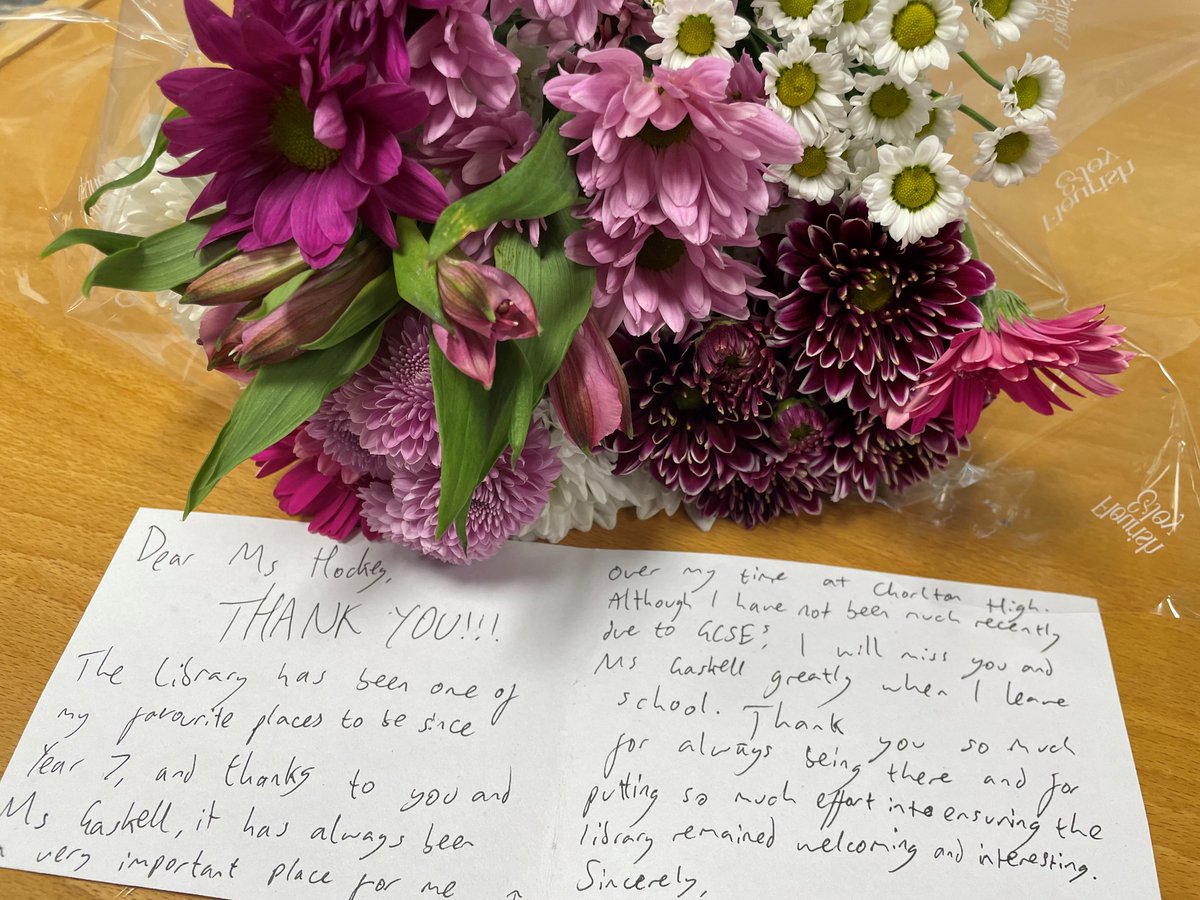 Dear Ms Hockey,
THANK YOU!!!
The library has been one of
my favourite places to be since
Year 7, and thanks to you and
Ms Gaskell, it has always been
a very important place for me
over my time at Chorlton High.
Although I have not been much recently
due to GCSEs, I will miss you and
Ms Gaskell greatly when I leave
school. Thank you so much
for always being there and for
putting so much effort into ensuring the
library remained welcoming and interesting.
Sincerely,
Flourish
Flourish